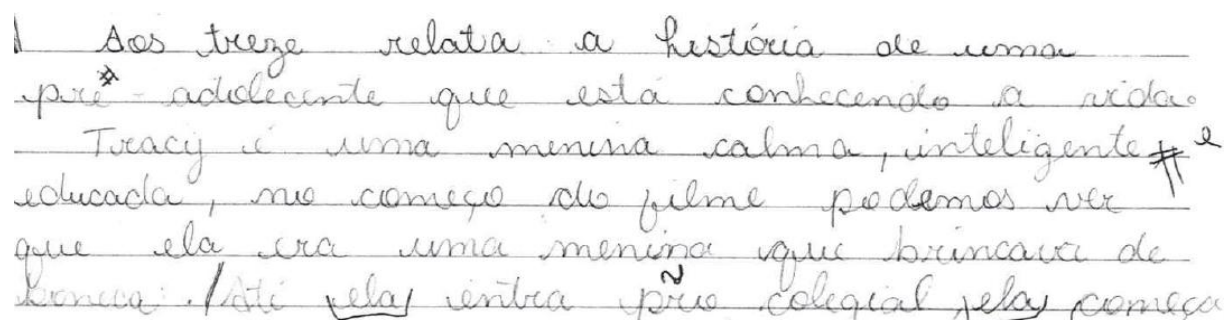 Aos treze relata a história de uma
pré - adolecente que está conhecendo a vida.
Tracy é uma menina calma, inteligente # e
educada, no começo do filme podemos ver
que ela era uma menina que brincava de
boneca. / Até ela entra pro colegial, ela começa